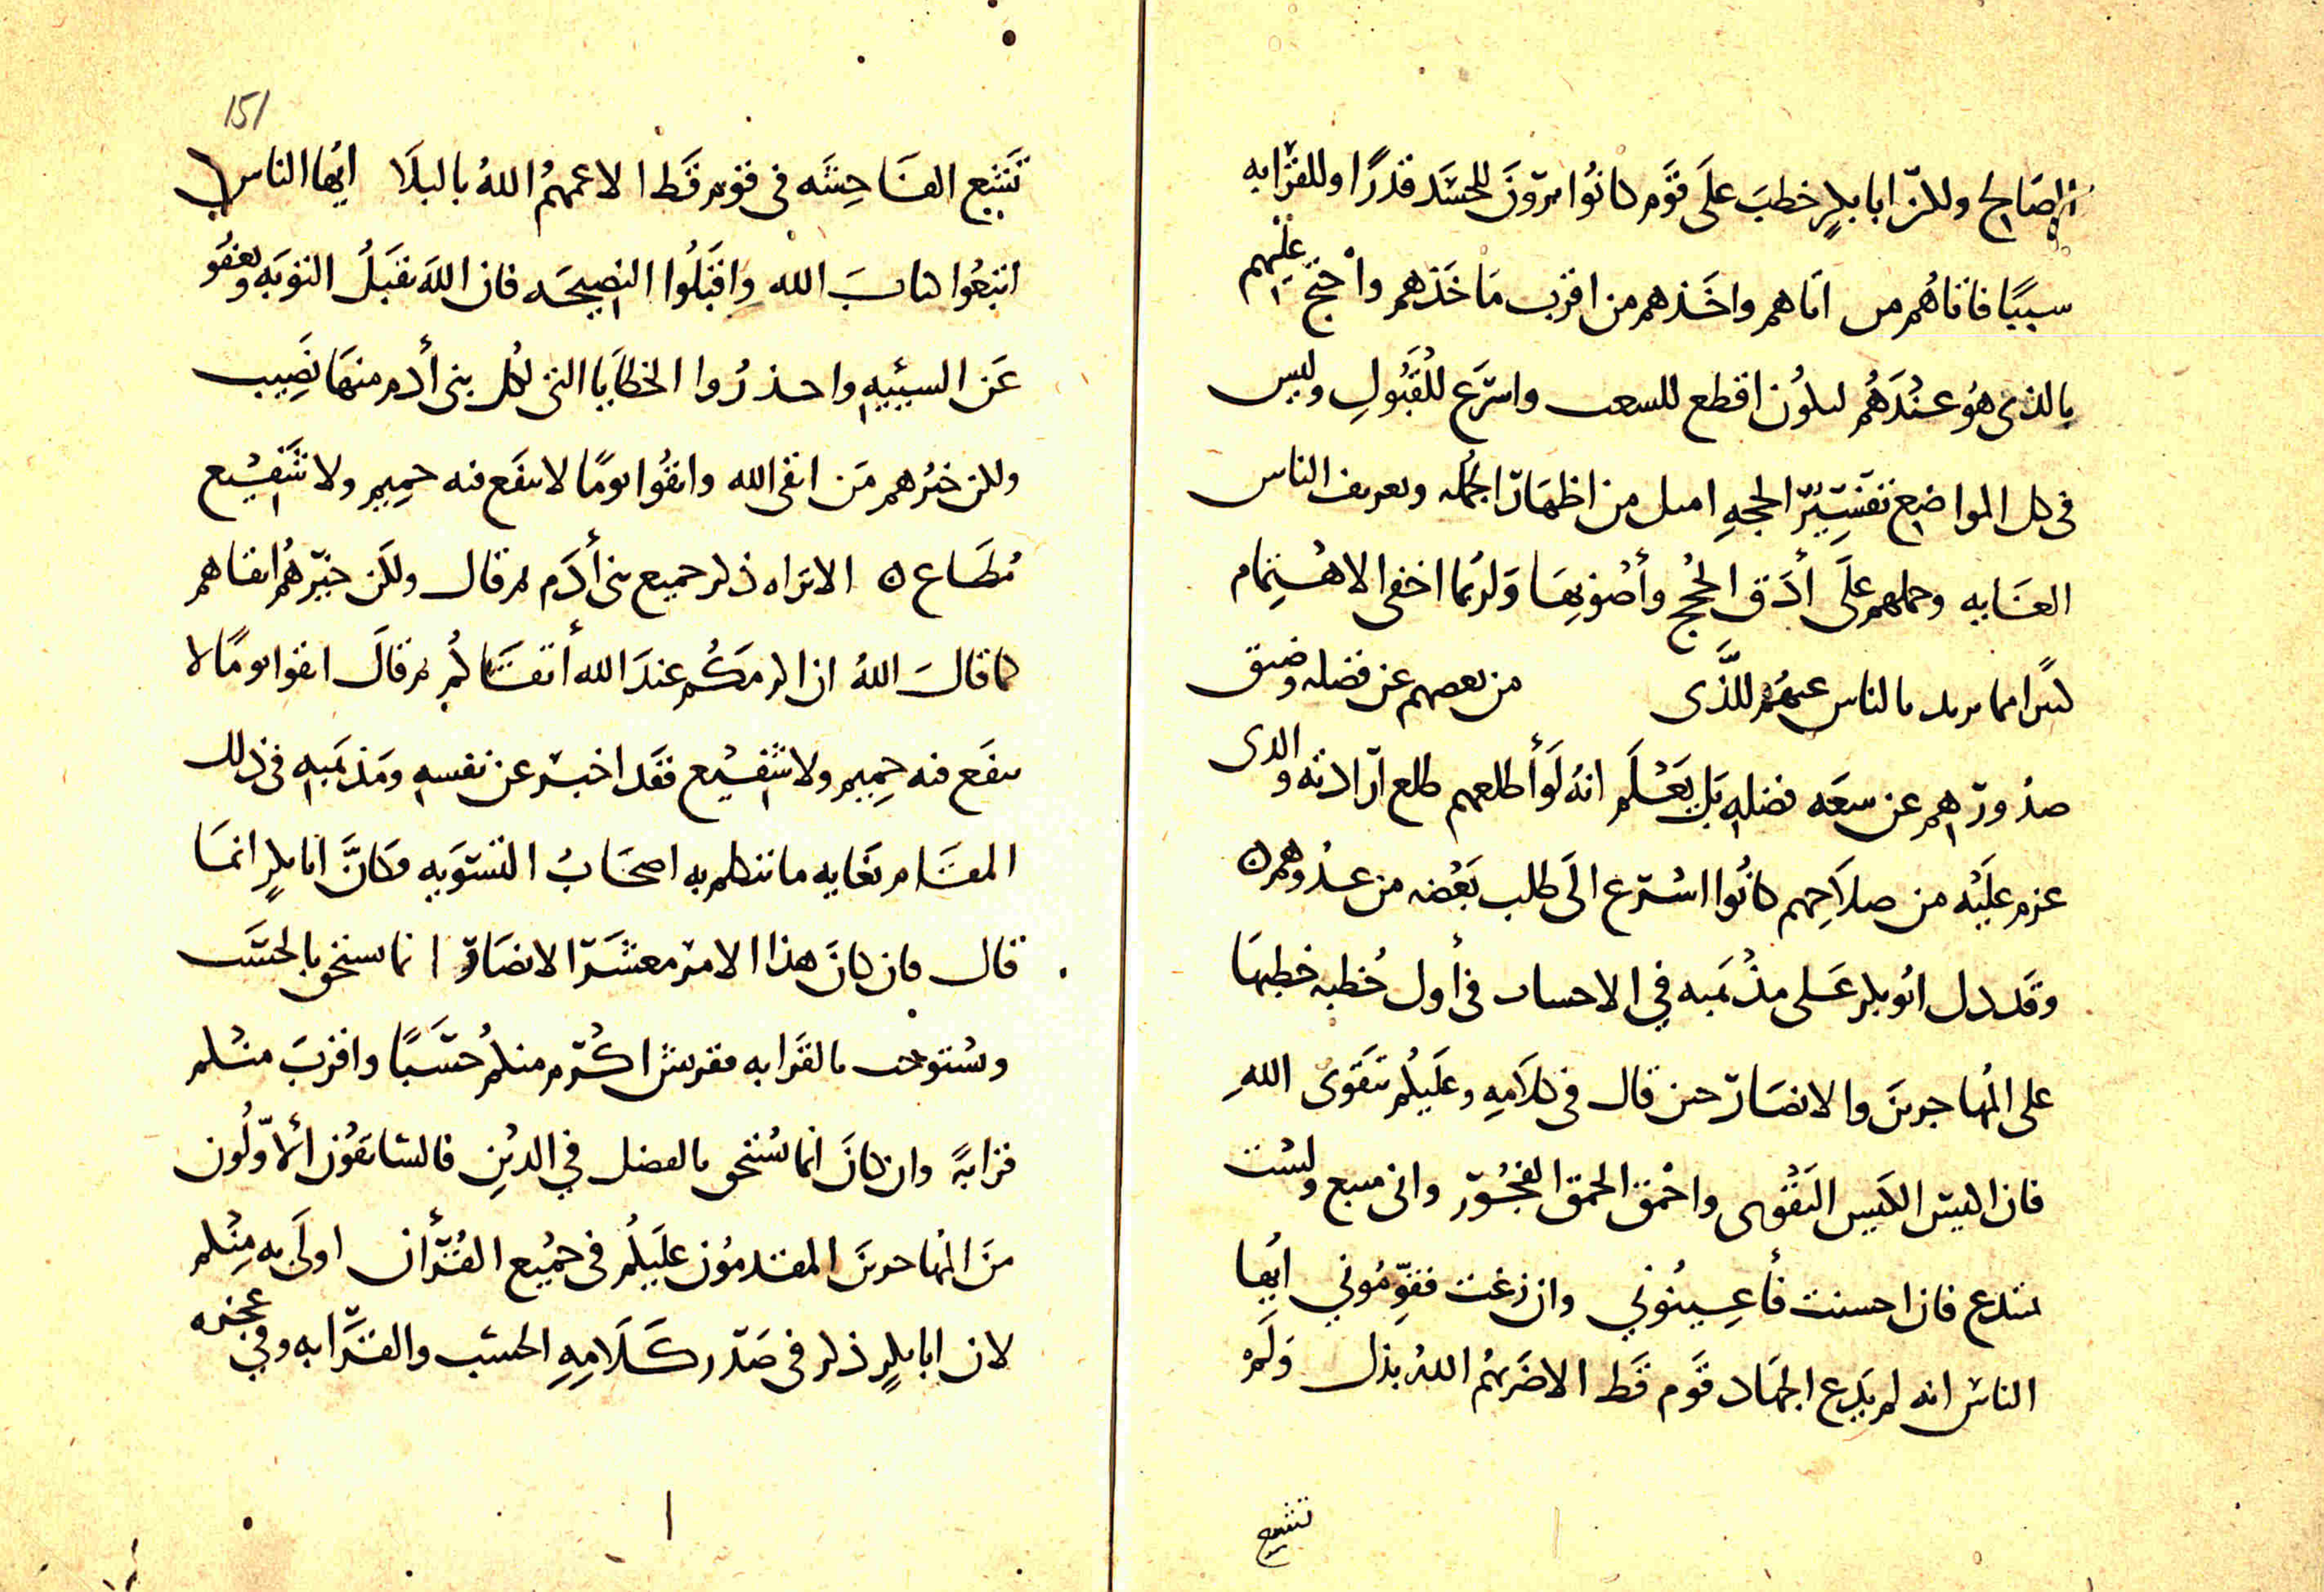 الصالح ولكن ابا بكر خطب على قوم كانوا يرون للحسب قدرا وللقرابه
سببا فاتاهم من اتاهم واخذهم من اقرب ماخذهم واحتج عليهم
بالذى هو عندهم ليكون اقطع للشعب واسرع للقبول وليس
فى كل المواضع تفسير الحجه امثل من اظهار الجمله وتعريف الناس
الغايه وحملهم على أدق الحجج وأصوبها ولربما اخفى الاهتمام
كثيرا مما يريد بالناس عنهم للذى من بعضهم عن فضله وضيق
صدورهم عن سعه فضله بل يعلم انه لو أطلعهم طلع ارادته والذى
عزم عليه من صلاحهم كانوا اسرع الى طلب بعضه من عدوهم ٥
وقد دل ابو بكر على مذهبه في الاحساب فى أول خطبه خطبها
على المهاجرين والانصار حين قال فى كلامه وعليكم بتقوى الله
فان اكيس الكيس التقوى واحمق الحمق الفجور وانى متبع ولست
بمبتدع فان احسنت فأعينوني وان زغت فقوموني ايها
الناس انه لم يدع الجهاد قوم قط الا ضربهم الله بذل ولم
تشيع
151
تشيع الفاحشه فى قوم قط الا عمهم الله بالبلا ايها الناس
اتبعوا كتاب الله واقبلوا النصيحه فان الله يقبل التوبه ويعفو
عن السيئيه واحذروا الخطايا التى لكل بنى أدم منها نصيب
ولكن خيرهم من اتقى الله واتقوا يوما لا ينفع فيه حميم ولا شفيع
مطاع ٥ الا تراه ذكر جميع بنى أدم ثم قال ولكن خيرهم اتقاهم
كما قال الله ان اكرمكم عند الله أتقاكم ثم قال اتقوا يوما لا
ينفع فيه حميم ولا شفيع فقد اخبر عن نفسه ومذهبه فى ذلك
المقام بغايه ما يتكلم به اصحاب التسويه وكان ابا بكر انما
قال فان كان هذا الامر معشر الانصار انما يستحق بالحسب
ويستوجب بالقرابه فقريش اكرم منكم حسبا واقرب منكم
قرابة وان كان انما يستحق بالفضل في الدين فالسابقون الأولون
من المهاجرين المقدمون عليكم فى جميع القرأن اولى به منكم
لان ابا بكر ذكر فى صدر كلامه الحسب والقرابه وفي عجزه